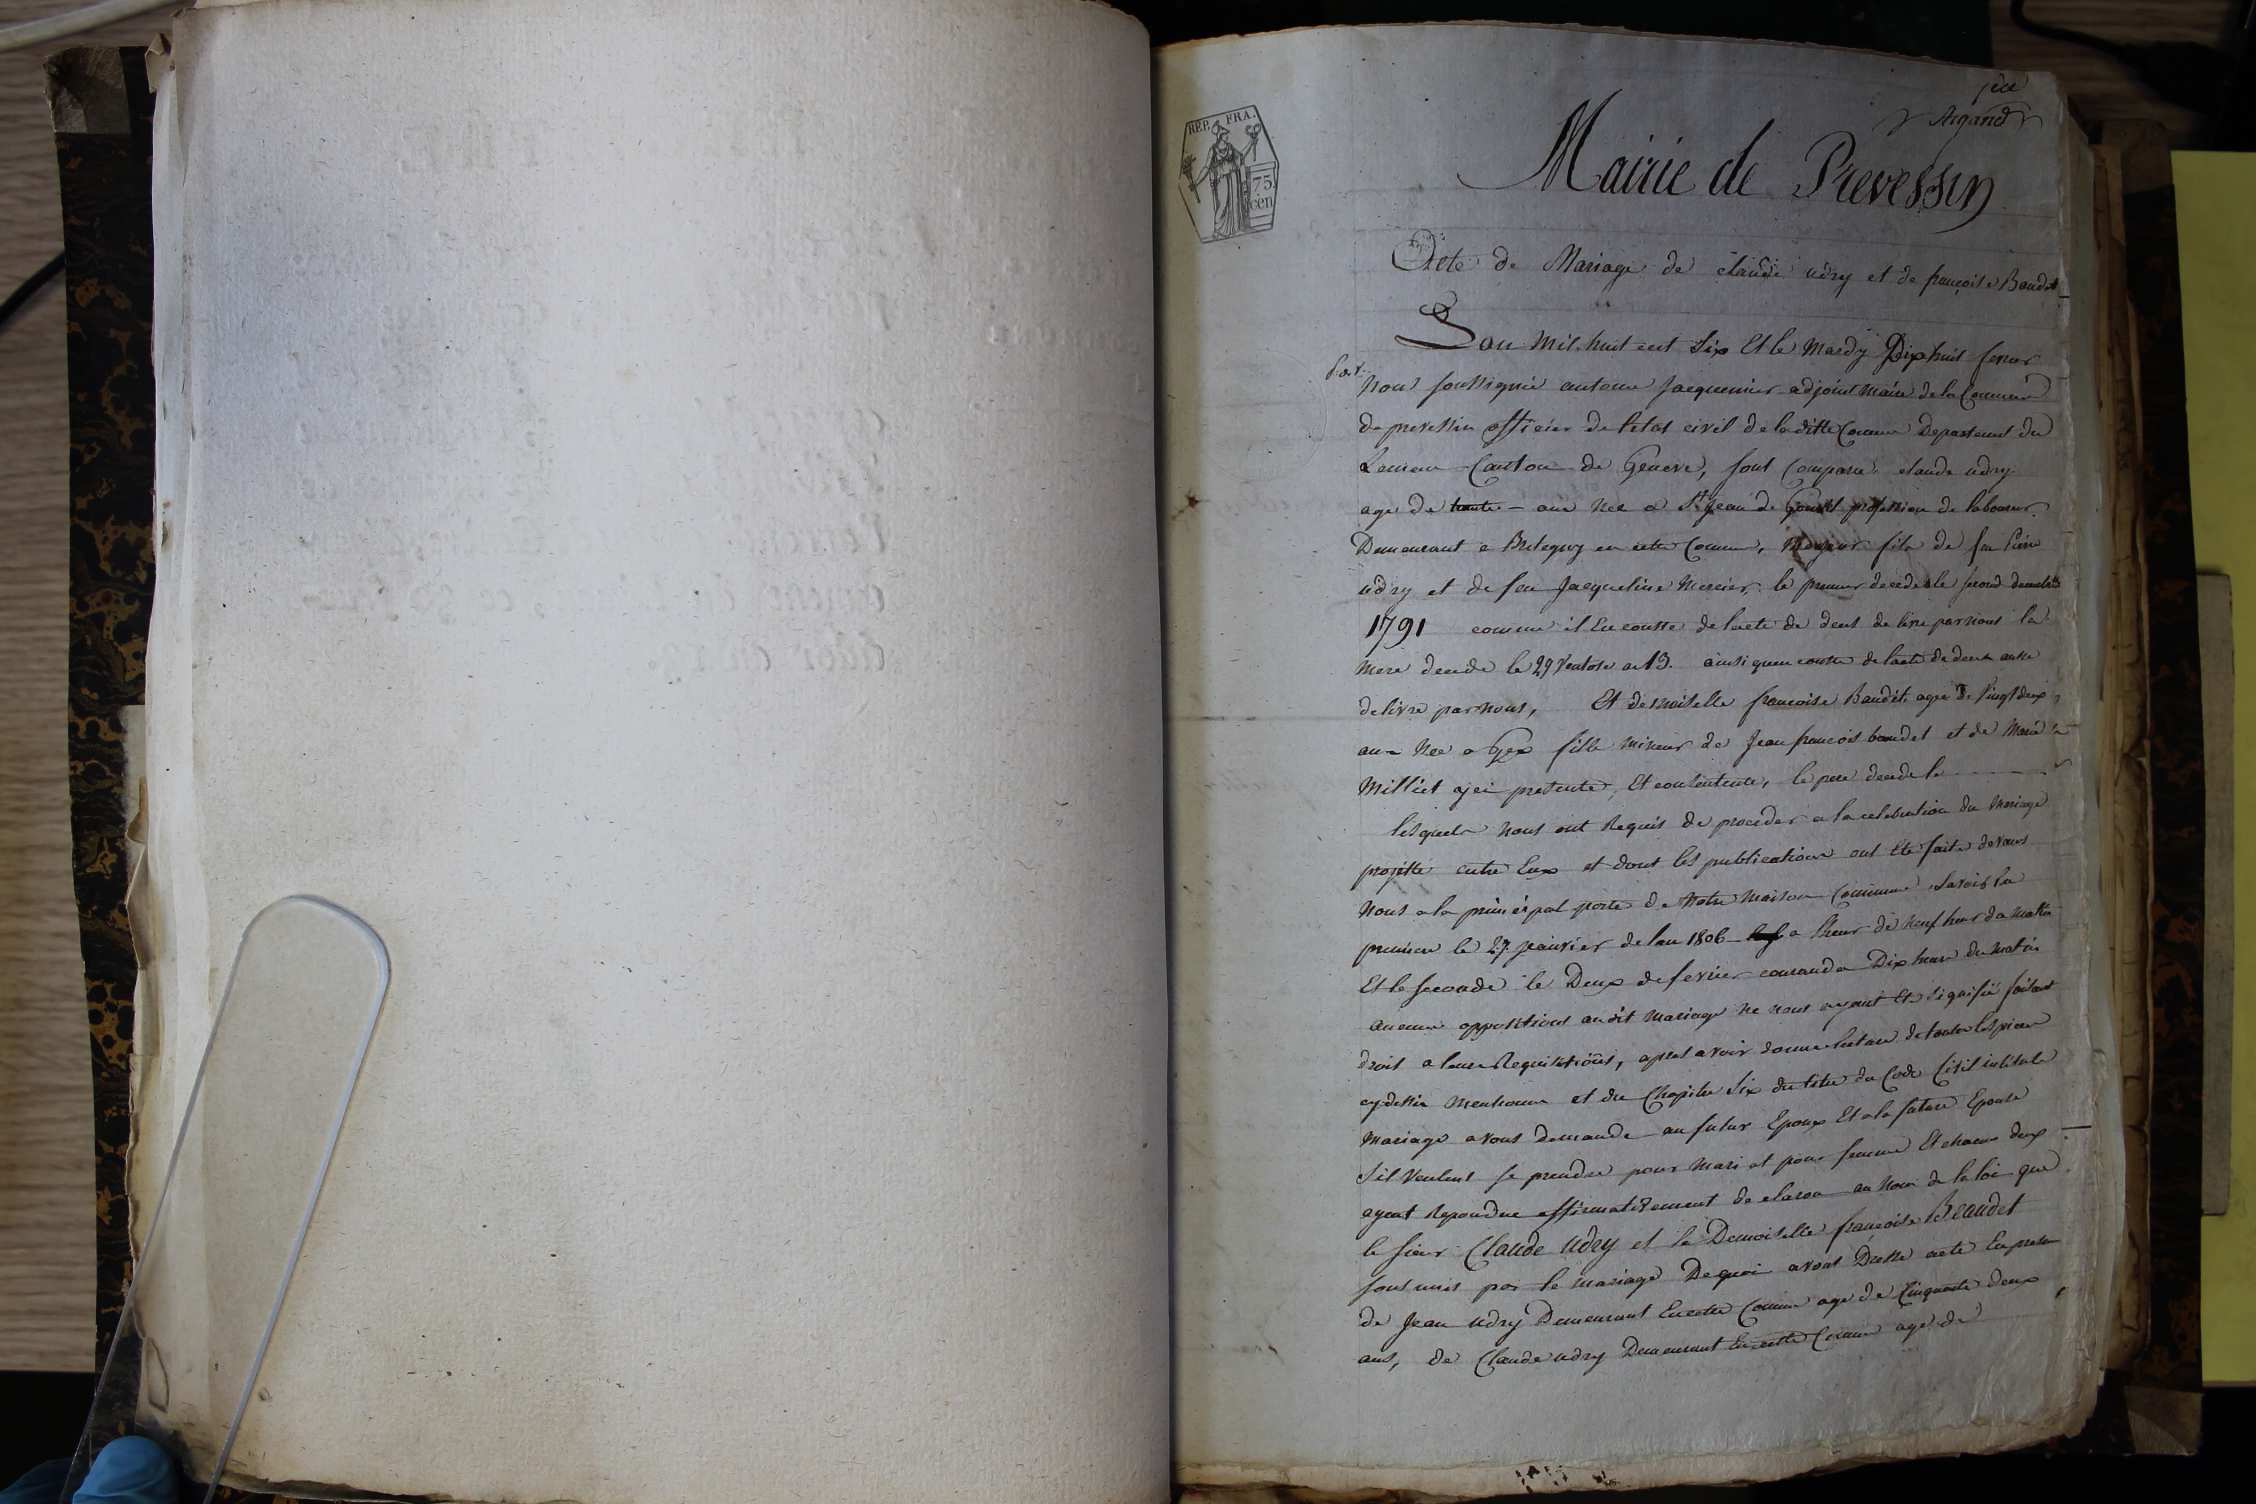 1ere
Argand
REP. FRA.
75.
cen
Mairie de Prevessin
Acte de Mariage de claude udry et de françoise Baudet
L'an Mil huit cent Six Et le Mardy Dix huit fevrier
par
Nous soussigné antoine Jacquemier adjoint Maire de la Commune
de prevessin officier de l'etat civil de la ditte Commune Departement du
Leman Canton de Geneve, sont Comparu claude udry
age de trante ans Nee a St Jean de Gonvil profession de laboureur
Demeurant a Bretegny en cette Commune, Majeur fils de feu Piere
udry et de feu Jacqueline Mercier, le premier decede le second
1791 comme il En conste de lacte de deces delivre par nous la
Mere decede le 29 Ventose an 13. ainsi quen conste de lacte de deces aussi
delivre par nous, Et demoiselle francoise Baudet agée de Vingt deux
ans Nee a Gex fille mineur de Jean francois baudet et de Marie
Milliet ayci presente, Et consentente, le pere decede le
lesquels nous ont Requis de proceder a la celebration du Mariage
projetté entre Eux et dont les publications ont été faite devant
Nous a la principal porte de Notre Maison Commune, Savoir la
premiere le 27 janvier de lan 1806 a lheure de Neuf heur du Matin
Et le seconde le Deux de fevrier courand a Dix heure du Matin
aucune oppositions audit Mariage ne nous ayant Eté signifié faisant
droit a leurs Requisitions, apres avoir donne lecture de toutes les pieces
cy dessus Mentionne et du Chapitre Six du titre du Code Civil intitule
Mariage avons demande au futur Epoux Et a la future Epouse
S'il Veulent se prendre pour Mari et pour femme Et chacun deux
ayant Repondue affirmativement declaron au nom de la loi que
le sieur Claude udry et la Demoiselle françoise Beaudet
sont unis par le mariage De quoi avons Dresse acte En presence
de Jean udry Demeurant En cette Commune age de Cinquante deux
ans, de Claude udry Demeurant En cette Commune age de